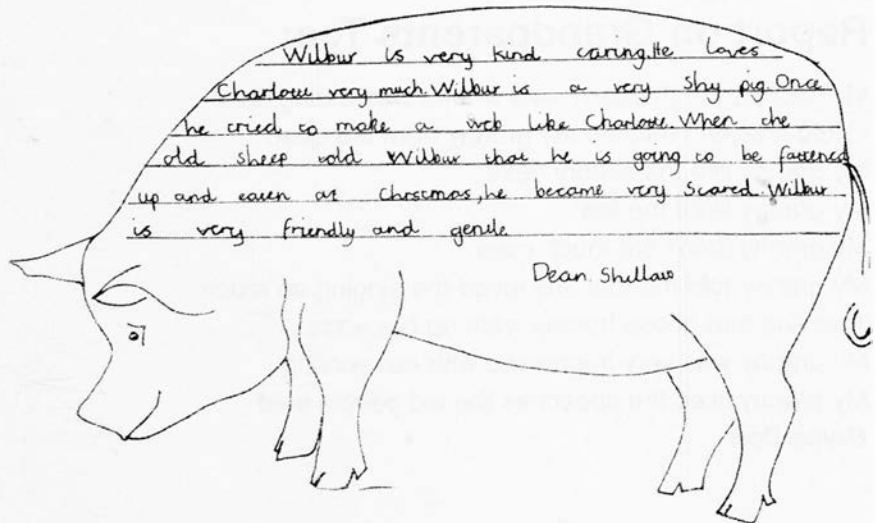 Wilbur is very kind caring. He loves
Charlotte very much. Wilbur is a very shy pig. Once
he tried to make a web like Charlotte. When the
old sheep told Wilbur that he is going to be fattened
up and eaten at Christmas, he became very scared. Wilbur
is very friendly and gentle
Dean Shullaw